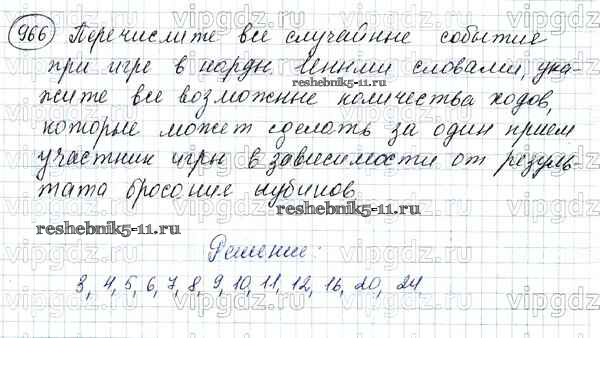 966 Перечислите все случайные события
при игре в нарды. Иными словами, ука-
жите все возможные количества ходов,
которые может сделать за один приём
участник игры в зависимости от резуль-
тата бросания кубиков
Решение:
3, 4, 5, 6, 7, 8, 9, 10, 11, 12, 16, 20, 24
reshebnik5-11.ru
reshebnik5-11.ru
reshebnik5-11.ru
vipgdz.ru